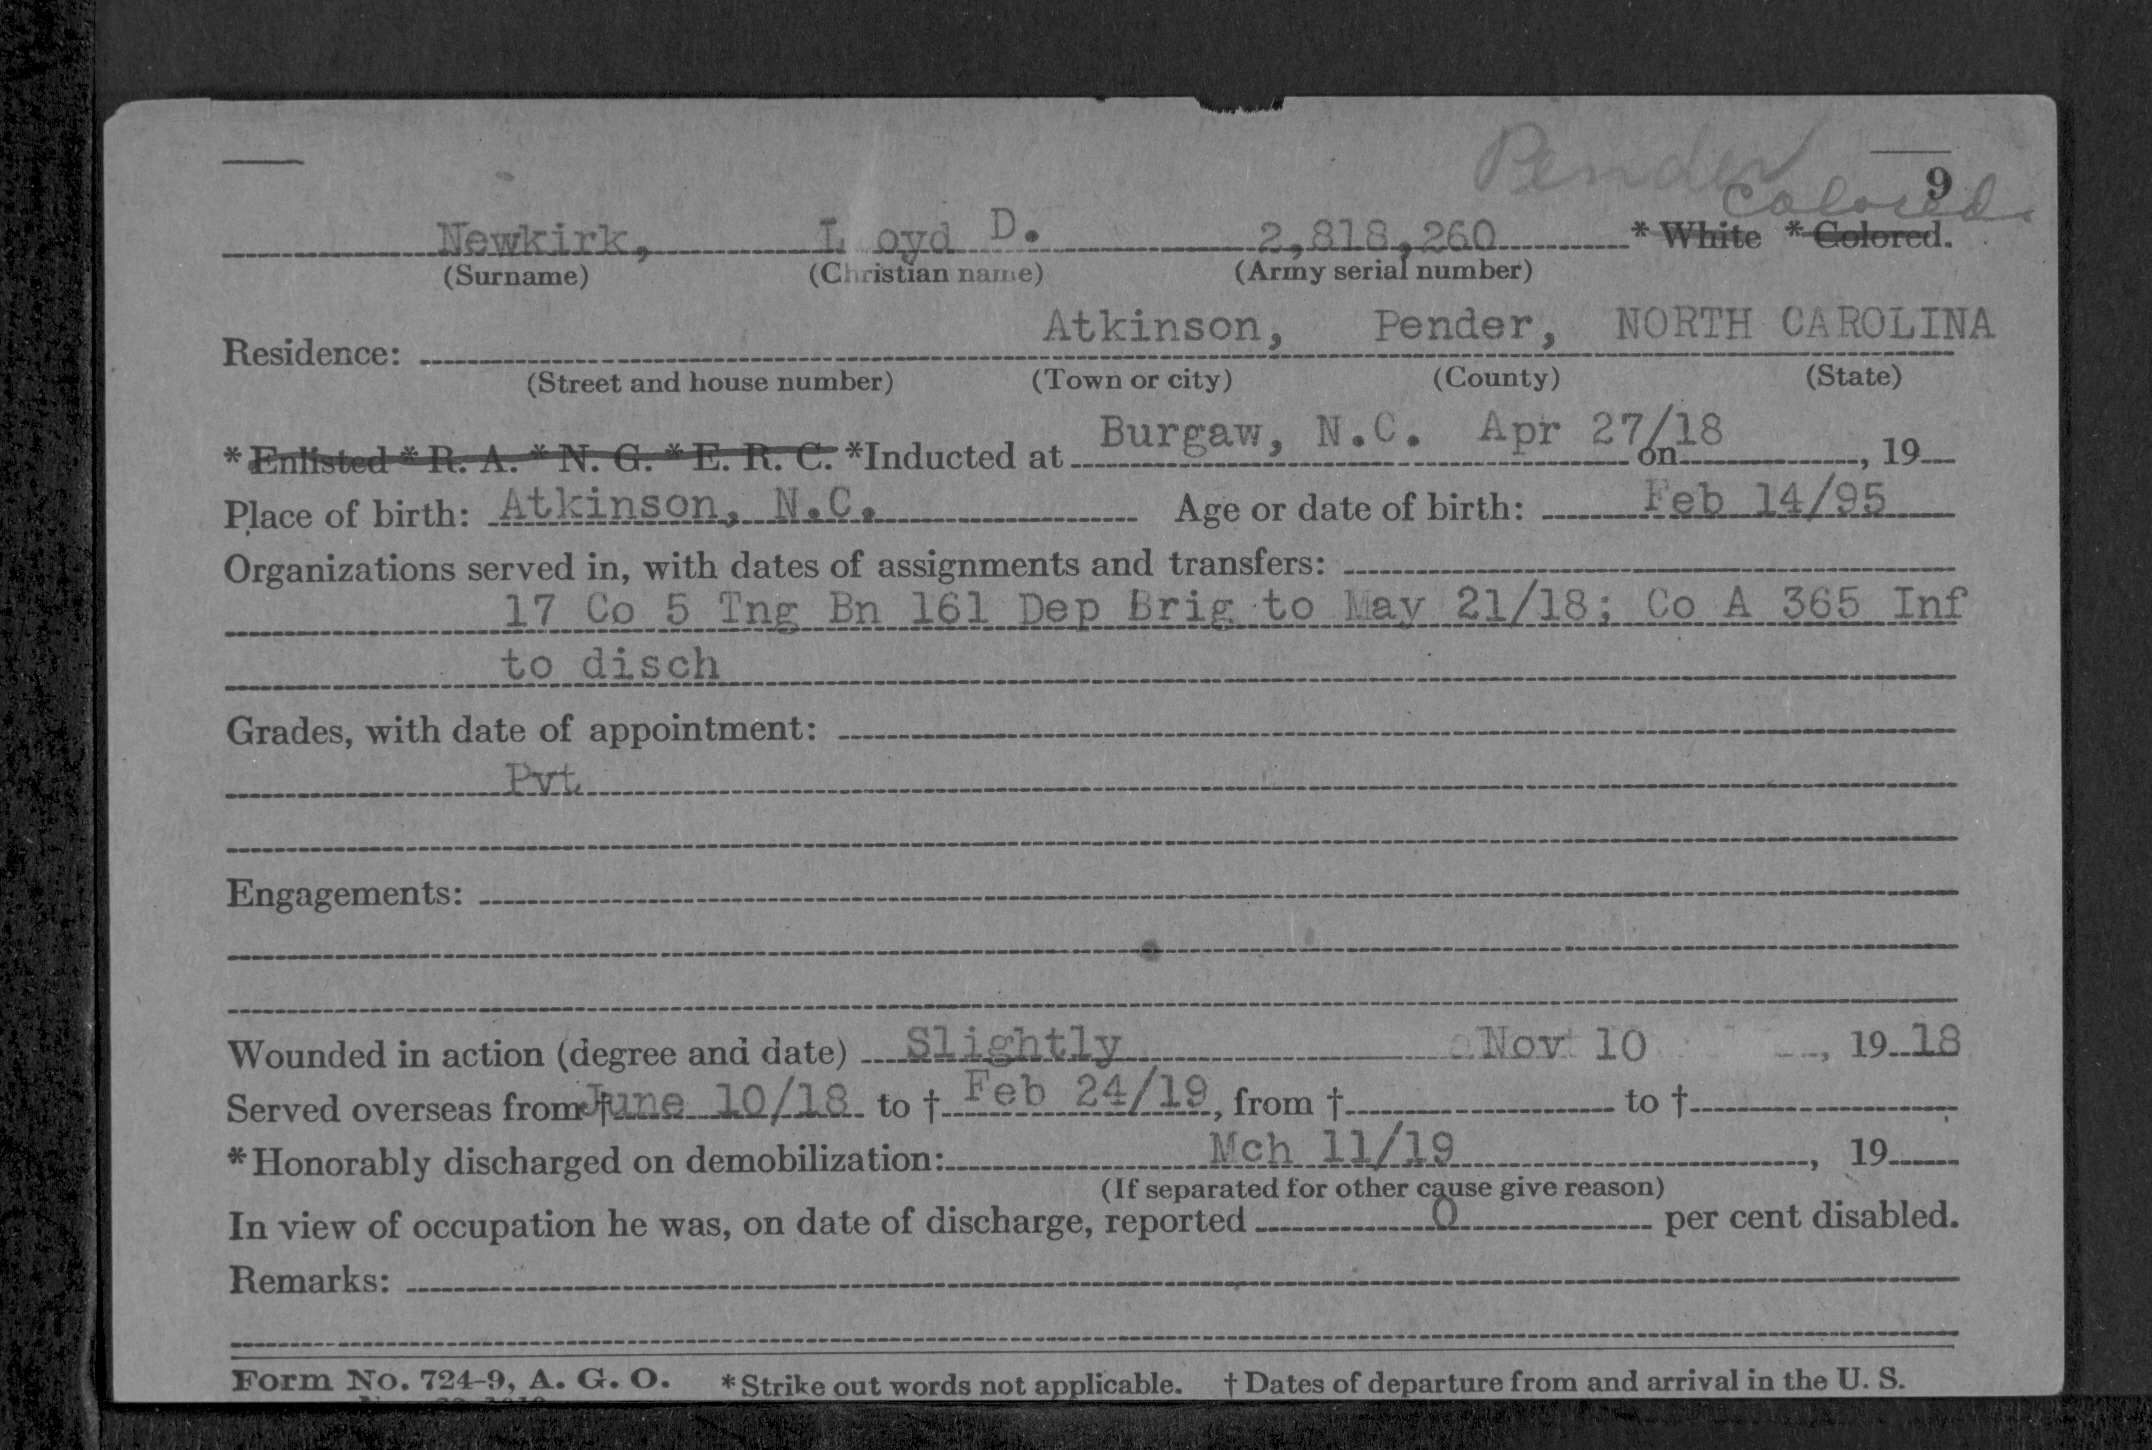 Pender
9
Colored.
Newkirk, Loyd D. 2,818,260 * White * Colored.
(Surname) (Christian name) (Army serial number)
Atkinson, Pender, NORTH CAROLINA
Residence:
(Street and house number) (Town or city) (County) (State)
Burgaw, N.C. Apr 27/18
* Enlisted * R. A. * N. G. * E. R. C. *Inducted at on , 19
Place of birth: Atkinson, N.C. Age or date of birth: Feb 14/95
Organizations served in, with dates of assignments and transfers:
17 Co 5 Tng Bn 161 Dep Brig to May 21/18; Co A 365 Inf
to disch
Grades, with date of appointment:
Pvt
Engagements:
Wounded in action (degree and date) Slightly Nov 10 , 19 18
Served overseas from † June 10/18 to † Feb 24/19, from † to †
*Honorably discharged on demobilization: Mch 11/19 , 19
(If separated for other cause give reason)
In view of occupation he was, on date of discharge, reported 0 per cent disabled.
Remarks:
Form No. 724-9, A. G. O. * Strike out words not applicable. † Dates of departure from and arrival in the U. S.